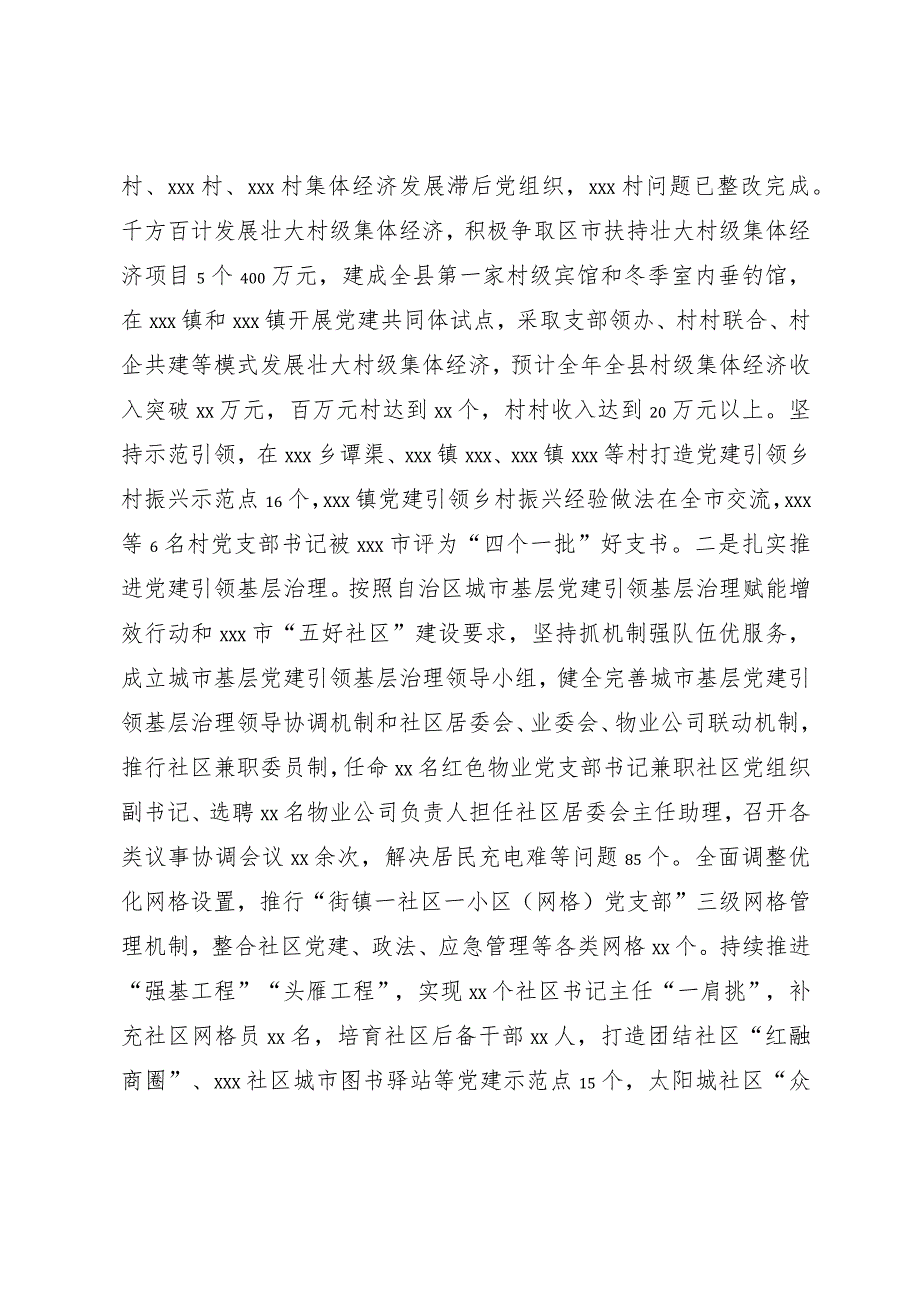 村、xxx 村、xxx 村集体经济发展滞后党组织，xxx 村问题已整改完成。
千方百计发展壮大村级集体经济，积极争取区市扶持壮大村级集体经
济项目 5 个 400 万元，建成全县第一家村级宾馆和冬季室内垂钓馆，
在 xxx 镇和 xxx 镇开展党建共同体试点，采取支部领办、村村联合、村
企共建等模式发展壮大村级集体经济，预计全年全县村级集体经济收
入突破 xx 万元，百万元村达到 xx 个，村村收入达到 20 万元以上。坚
持示范引领，在 xxx 乡谭渠、xxx 镇 xxx、xxx 镇 xxx 等村打造党建引领乡
村振兴示范点 16 个，xxx 镇党建引领乡村振兴经验做法在全市交流，xxx
等 6 名村党支部书记被 xxx 市评为“四个一批”好支书。二是扎实推
进党建引领基层治理。按照自治区城市基层党建引领基层治理赋能增
效行动和 xxx 市“五好社区”建设要求，坚持抓机制强队伍优服务，
成立城市基层党建引领基层治理领导小组，健全完善城市基层党建引
领基层治理领导协调机制和社区居委会、业委会、物业公司联动机制，
推行社区兼职委员制，任命 xx 名红色物业党支部书记兼职社区党组织
副书记、选聘 xx 名物业公司负责人担任社区居委会主任助理，召开各
类议事协调会议 xx 余次，解决居民充电难等问题 85 个。全面调整优
化网格设置，推行“街镇一社区一小区（网格）党支部”三级网格管
理机制，整合社区党建、政法、应急管理等各类网格 xx 个。持续推进
“强基工程”“头雁工程”，实现 xx 个社区书记主任“一肩挑”，补
充社区网格员 xx 名，培育社区后备干部 xx 人，打造团结社区“红融
商圈”、xxx 社区城市图书驿站等党建示范点 15 个，太阳城社区“众